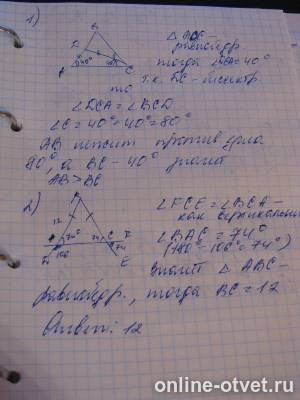 1)
B
D
A
C
40°
△ ADC -
равнобедр
тогда ∠DCA = 40°
т.к. DC - биссектр.
то
∠DCA = ∠BCD
∠C = 40° + 40° = 80°
AB лежит против угла
80°, а BC - 40° значит
AB > BC
2)
12
74°
74
106
C
F
E
∠FCE = ∠BCA -
как вертикальн
∠BAC = 74°
(180° - 106° = 74°)
значит △ ABC -
равнобедр., тогда BC = 12
Ответ: 12
online-otvet.ru